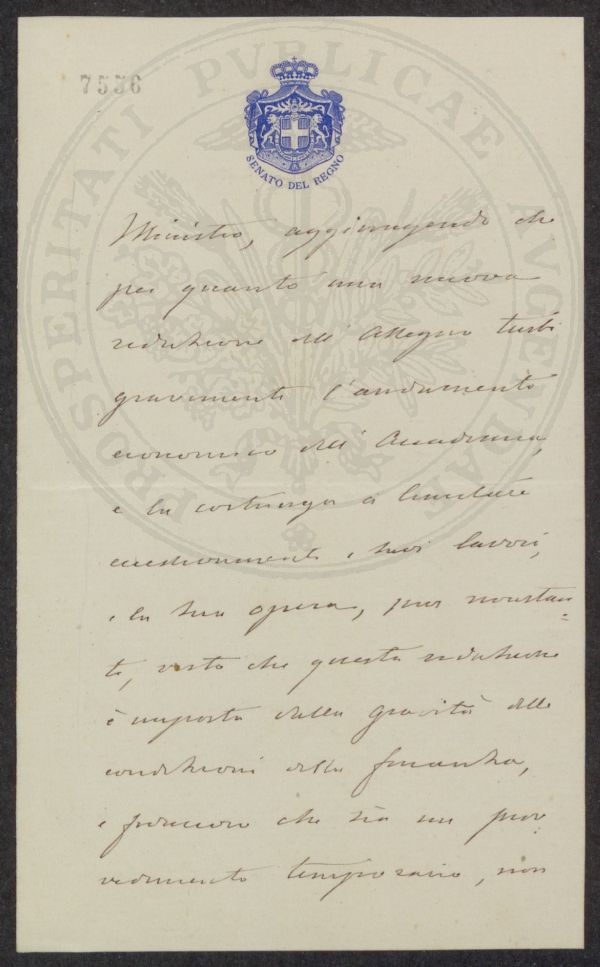 7556
SENATO DEL REGNO
PROSPERITATI PVBLICAE AVGENDAE
Ministro, aggiungendo che
per quanto una nuova
riduzione dell'Assegno turbi
gravemente l'andamento
economico dell'Accademia,
e la costringa a limitare
i suoi lavori,
e la sua opera, pur nonostan=
te, visto che questa riduzione
è imposta dalla gravità delle
condizioni della finanza,
e che sia un prov
vedimento temporario, non